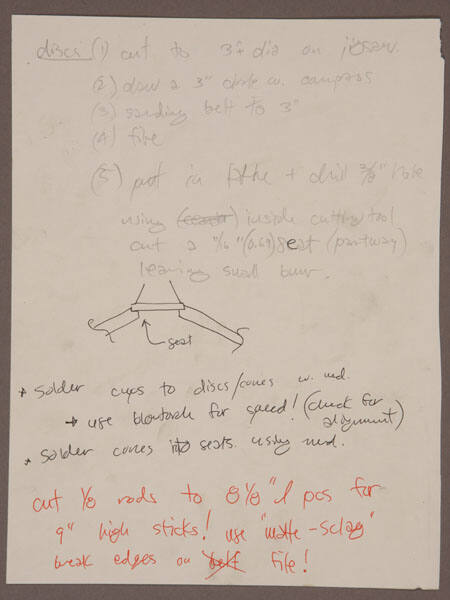 discs (1) cut to 3"+ dia on jigsaw.
(2) draw a 3" circle w. compass
(3) sanding belt to 3"
(4) file
(5) put in lathe + drill 3/8" hole
using inside cutting tool
cut a 11/16" (0.69) seat (partway)
leaving small burr.
seat
* solder cups to discs/cones w. med.
→ use blowtorch for speed! (check for
alignment)
* solder cones into seats using med.
cut 1/8 rods to 8 1/8" l pcs for
9" high sticks! use
break edges on file!